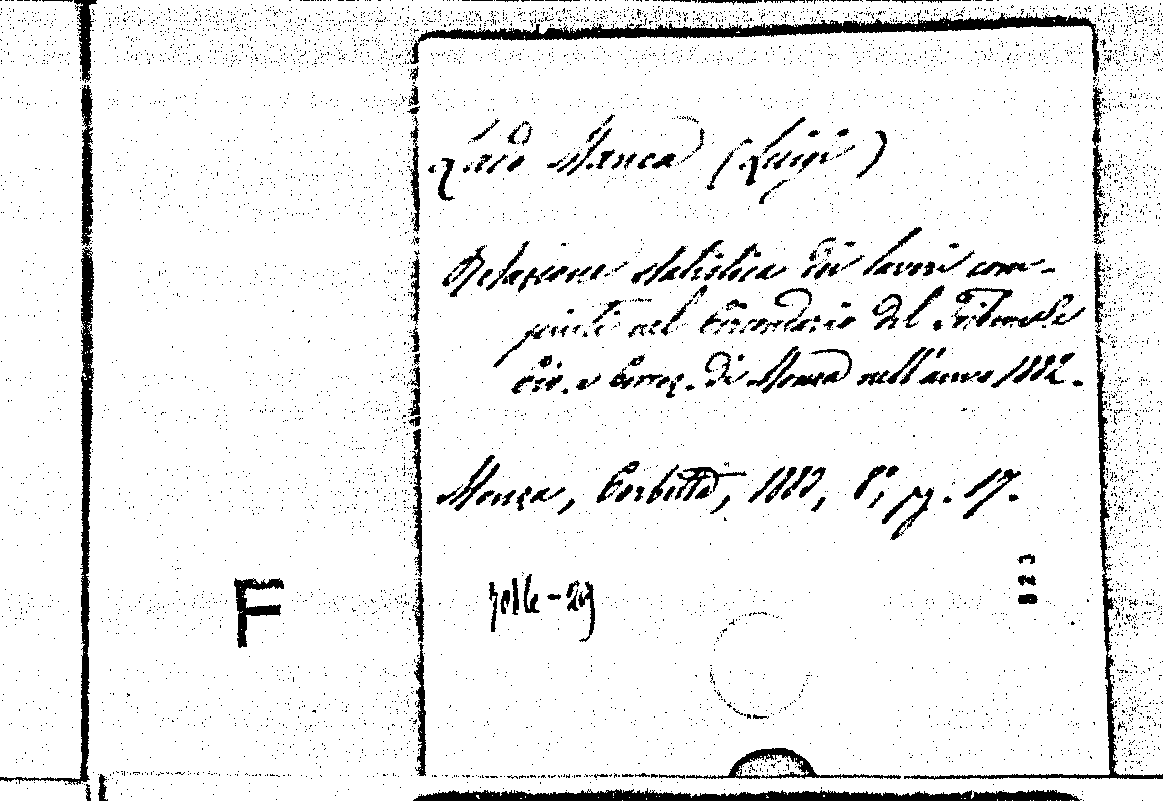 Manca (Luigi)
Relazione statistica dei lavori com-
piuti nel Circondario del Tribunale
Civ. e Correz. di Monza nell'anno 1882.
Monza, Corbetta, 1883, 8°, pg. 17.
F
823